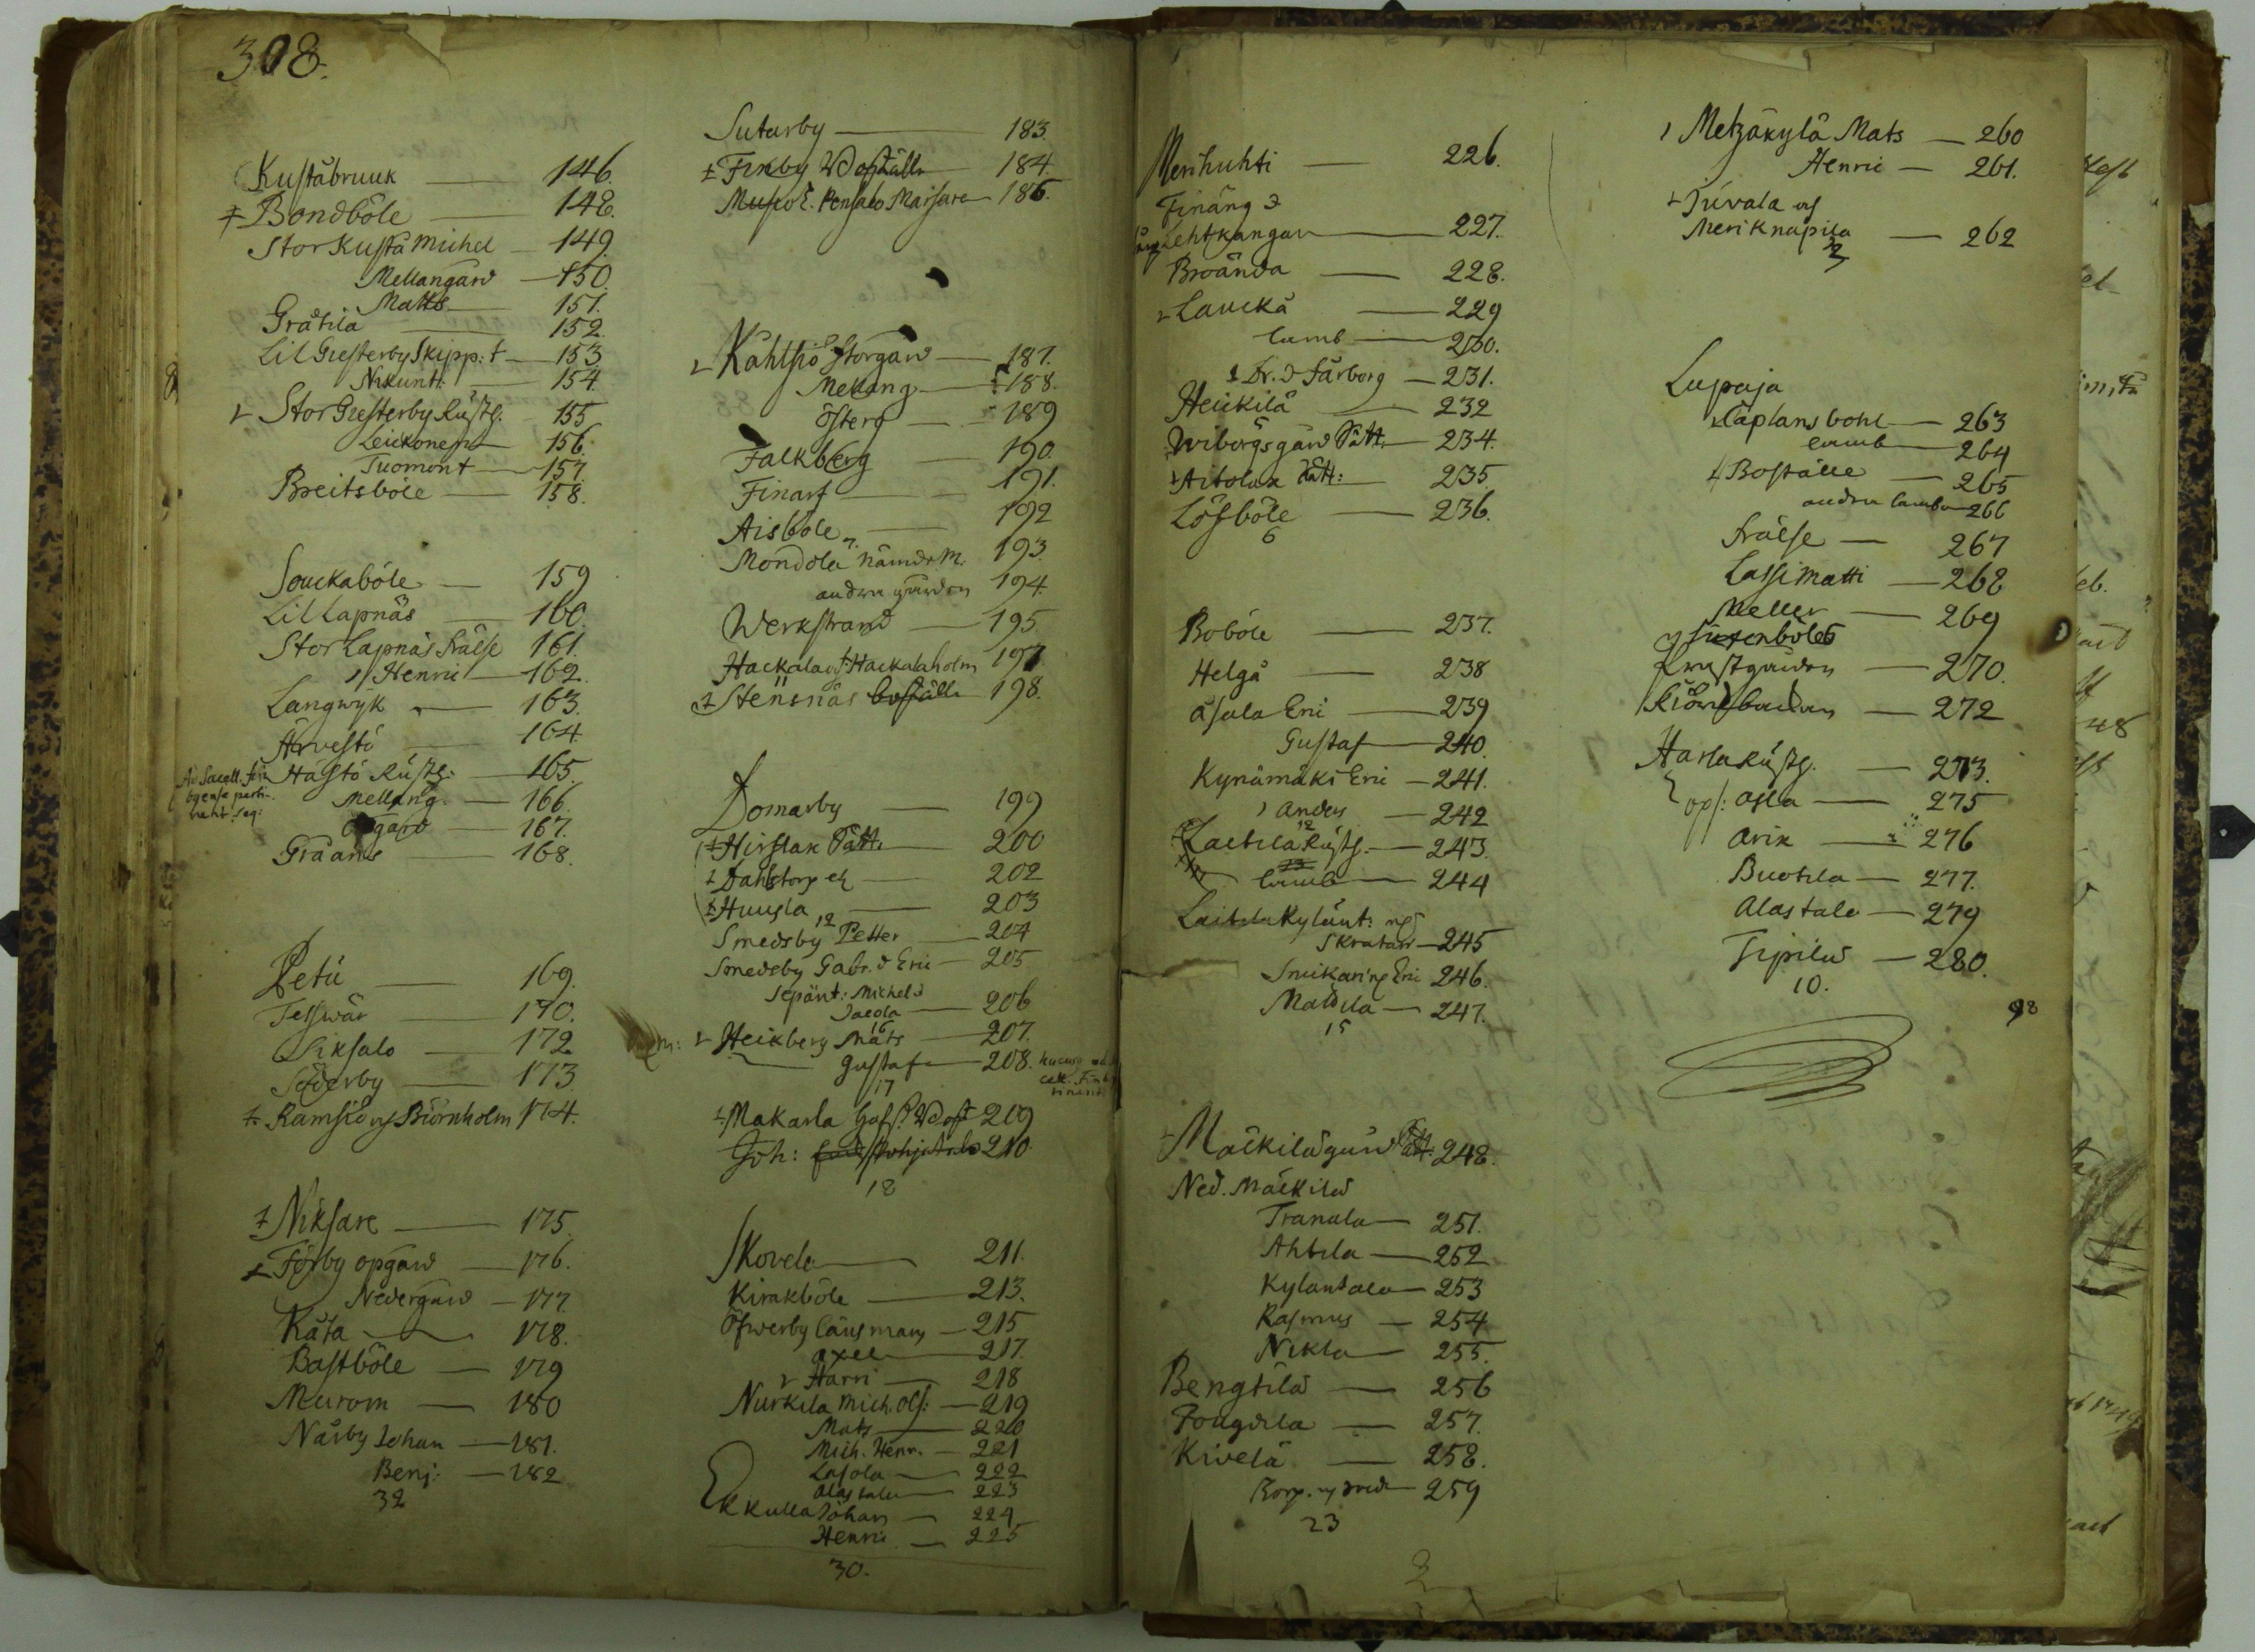 308.
Kuståbruuk — 146.
Bondböle — 148.
Stor Kustå Michel — 149.
Mellangård — 150.
Matts — 151.
Gråttila — 152.
Lil Giesterby Skipp: t — 153
Nikunt: — 154.
Stor Giesterby Rustg. — 155
Leickonen — 156.
Tuomont — 157.
Breitsböle — 158.
Souckaböle — 159
Lil Lapnäs — 160.
Stor Lapnäs Frälse 161.
Henric — 162.
Langwyk — 163.
Årvestö — 164.
Hästö Rustg. — 165.
Ad Sacell. Fin
byense perti-
nent seq:
Mellang. — 166.
Opgård — 167.
Gråans — 168.
Petü — 169.
Tesswär — 170.
Liksalo — 172
Söderby — 173
Ramsiö og Biörnholm 174.
Niksare — 175.
Förby opgård — 176.
Nedergård — 177.
Råfa — 178.
Bastböle — 179
Murom — 180
Närby Johan — 181.
Benj: — 182
32
Sutarby — 183.
Finby Boställe — 184.
Pensalo Maisare — 186.
Kahtiö Storgård — 187.
Mellang — 188.
Österg — 189
Falkberg — 190.
Finarf — 191.
Aisböle — 192
Mondola nämdem. 193.
andra gården 194.
Werkstrand — 195.
Hackala og Hackalaholm 197.
Stensnäs boställe 198.
Domarby — 199
Hirslax Sätt. — 200
Dahlstorp — 202
Huusla — 203
12
Smedsby Petter — 204
Smedsby Gabr. & Eric — 205
Sepänt: Michels
Jacola — 206
16
Heickberg Mats — 207.
Gustaf — 208.
17
Makarla — 209
Joh: — 210.
18
Skovela — 211.
Kirakböle — 213.
Öfwerby länsman — 215
Axel — 217.
Harri — 218
Nurkila Mich. Ols: — 219
Mats — 220
Mich. Henr. — 221
Lasola — 222
Alastalo — 223
Kulla Johan — 224
Henric — 225
30.
Merihuhti — 226.
Finäng &
Lehtkangar — 227.
Broända — 228.
Lauckä — 229
lamb — 230.
Dr. & Färborg — 231.
Heickilä — 232
Wiborgsgård Sätt. — 234.
Aitolax Sätt: — 235.
Löfböle — 236.
6
Boböle — 237.
Helgå — 238
Åsala Eric — 239
Gustaf — 240.
Kynämäki Eric — 241.
Anders — 242
12
Laitila Rustg. — 243.
13
lamb — 244
Laitila Kylänt: og
Skratari — 245
Smikaring Eric 246.
Mattila — 247.
15
Mäckilägård Sätt. 248.
Ned. Mäckilä
Tranala — 251.
Ahtila — 252
Kylantalo — 253
Rasmus — 254
Nikla — 255.
Bengtilä — 256
Fougdila — 257.
Kivelä — 258.
Korp. — 259
23
Metzäkylä Mats — 260
Henric — 261.
Juvala og
Meriknapila — 262
3
Lupaja
Caplans bohl — 263
lamb — 264
Boställe — 265
andra lambo — 266
Frälse — 267
Lassi Matti — 268
Meller — 269
Knastgården — 270.
— 272
Harla Rustg. — 273.
Ofla — 275
Arik — 276
Buotila — 277.
Alastalo — 279
Tipilä — 280.
10.
98